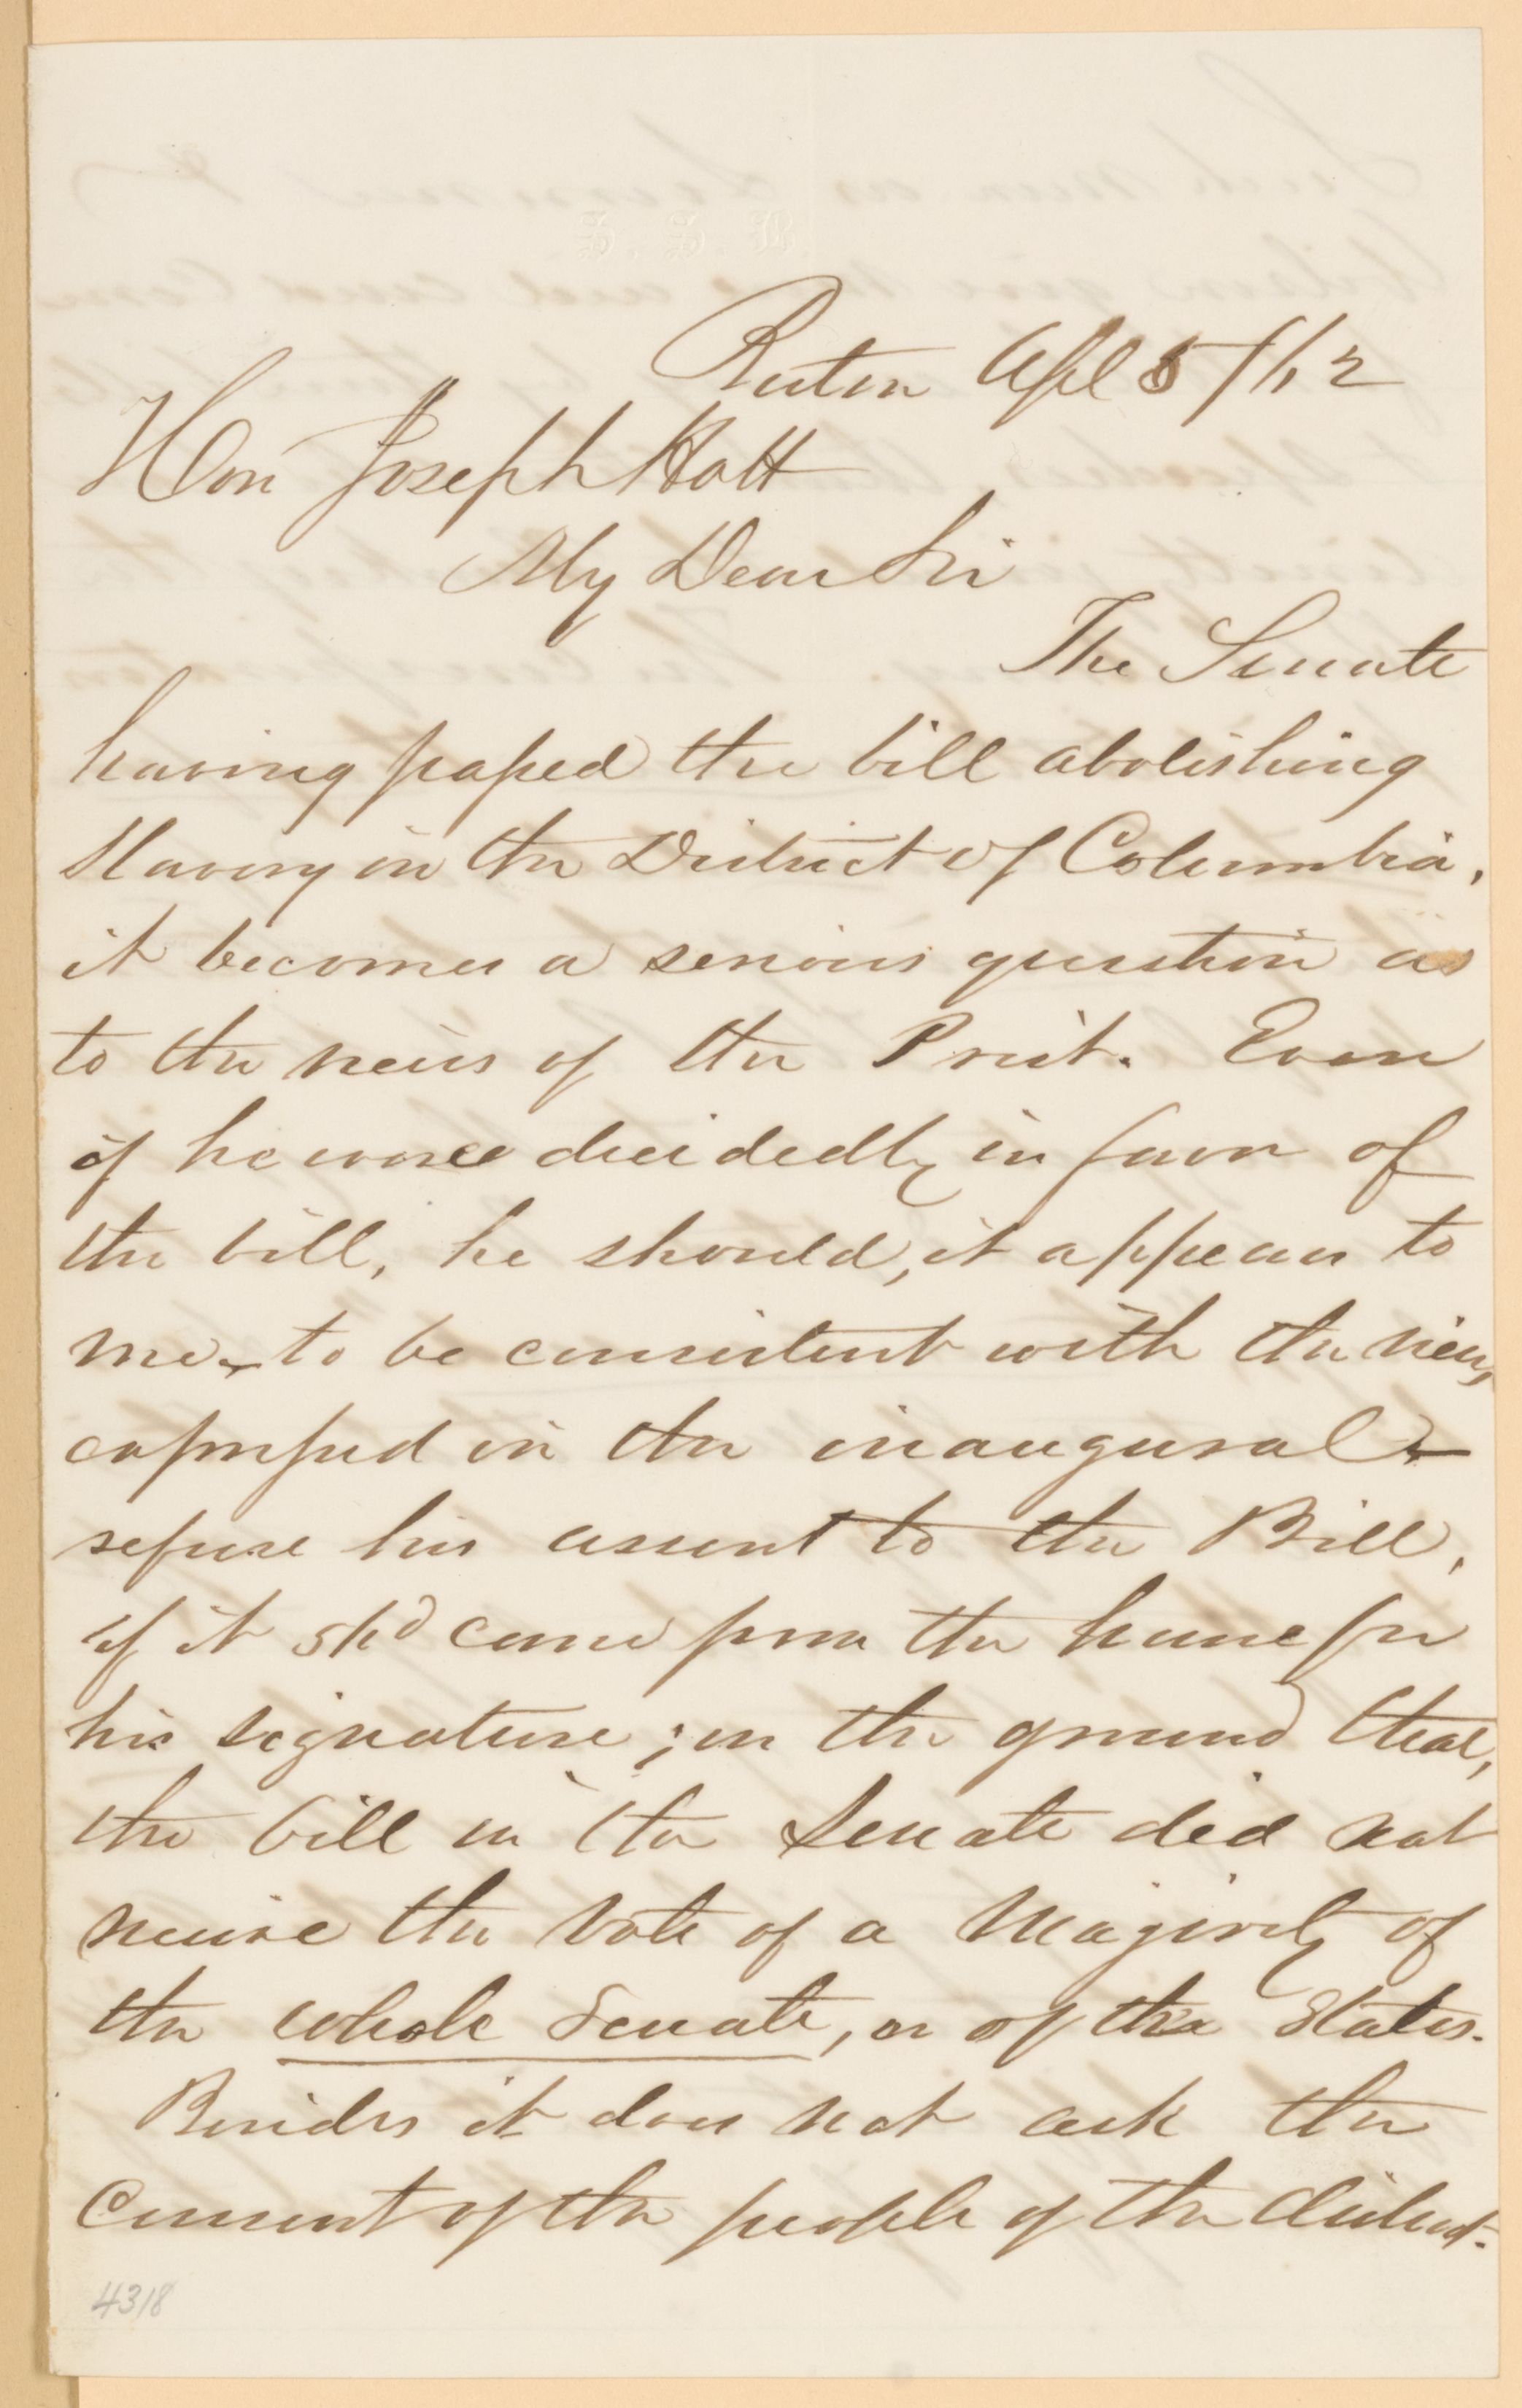 S. S. B.
Boston Apl 5 / 62
Hon Joseph Holt
My Dear Sir
The Senate
having passed the bill abolishing
Slavery in the District of Columbia,
it becomes a serious question as
to the views of the Presdt. Even
if he were decidedly in favor of
the bill, he should, it appears to
me - to be consistent with the views
expressed in the inaugural -
refuse his assent to the Bill,
if it shd come from the house for
his signature; on the ground that,
the bill in the Senate did not
receive the vote of a Majority of
the whole Senate, or of the States.
Besides it does not ask the
Consent of the people of the District.
4318